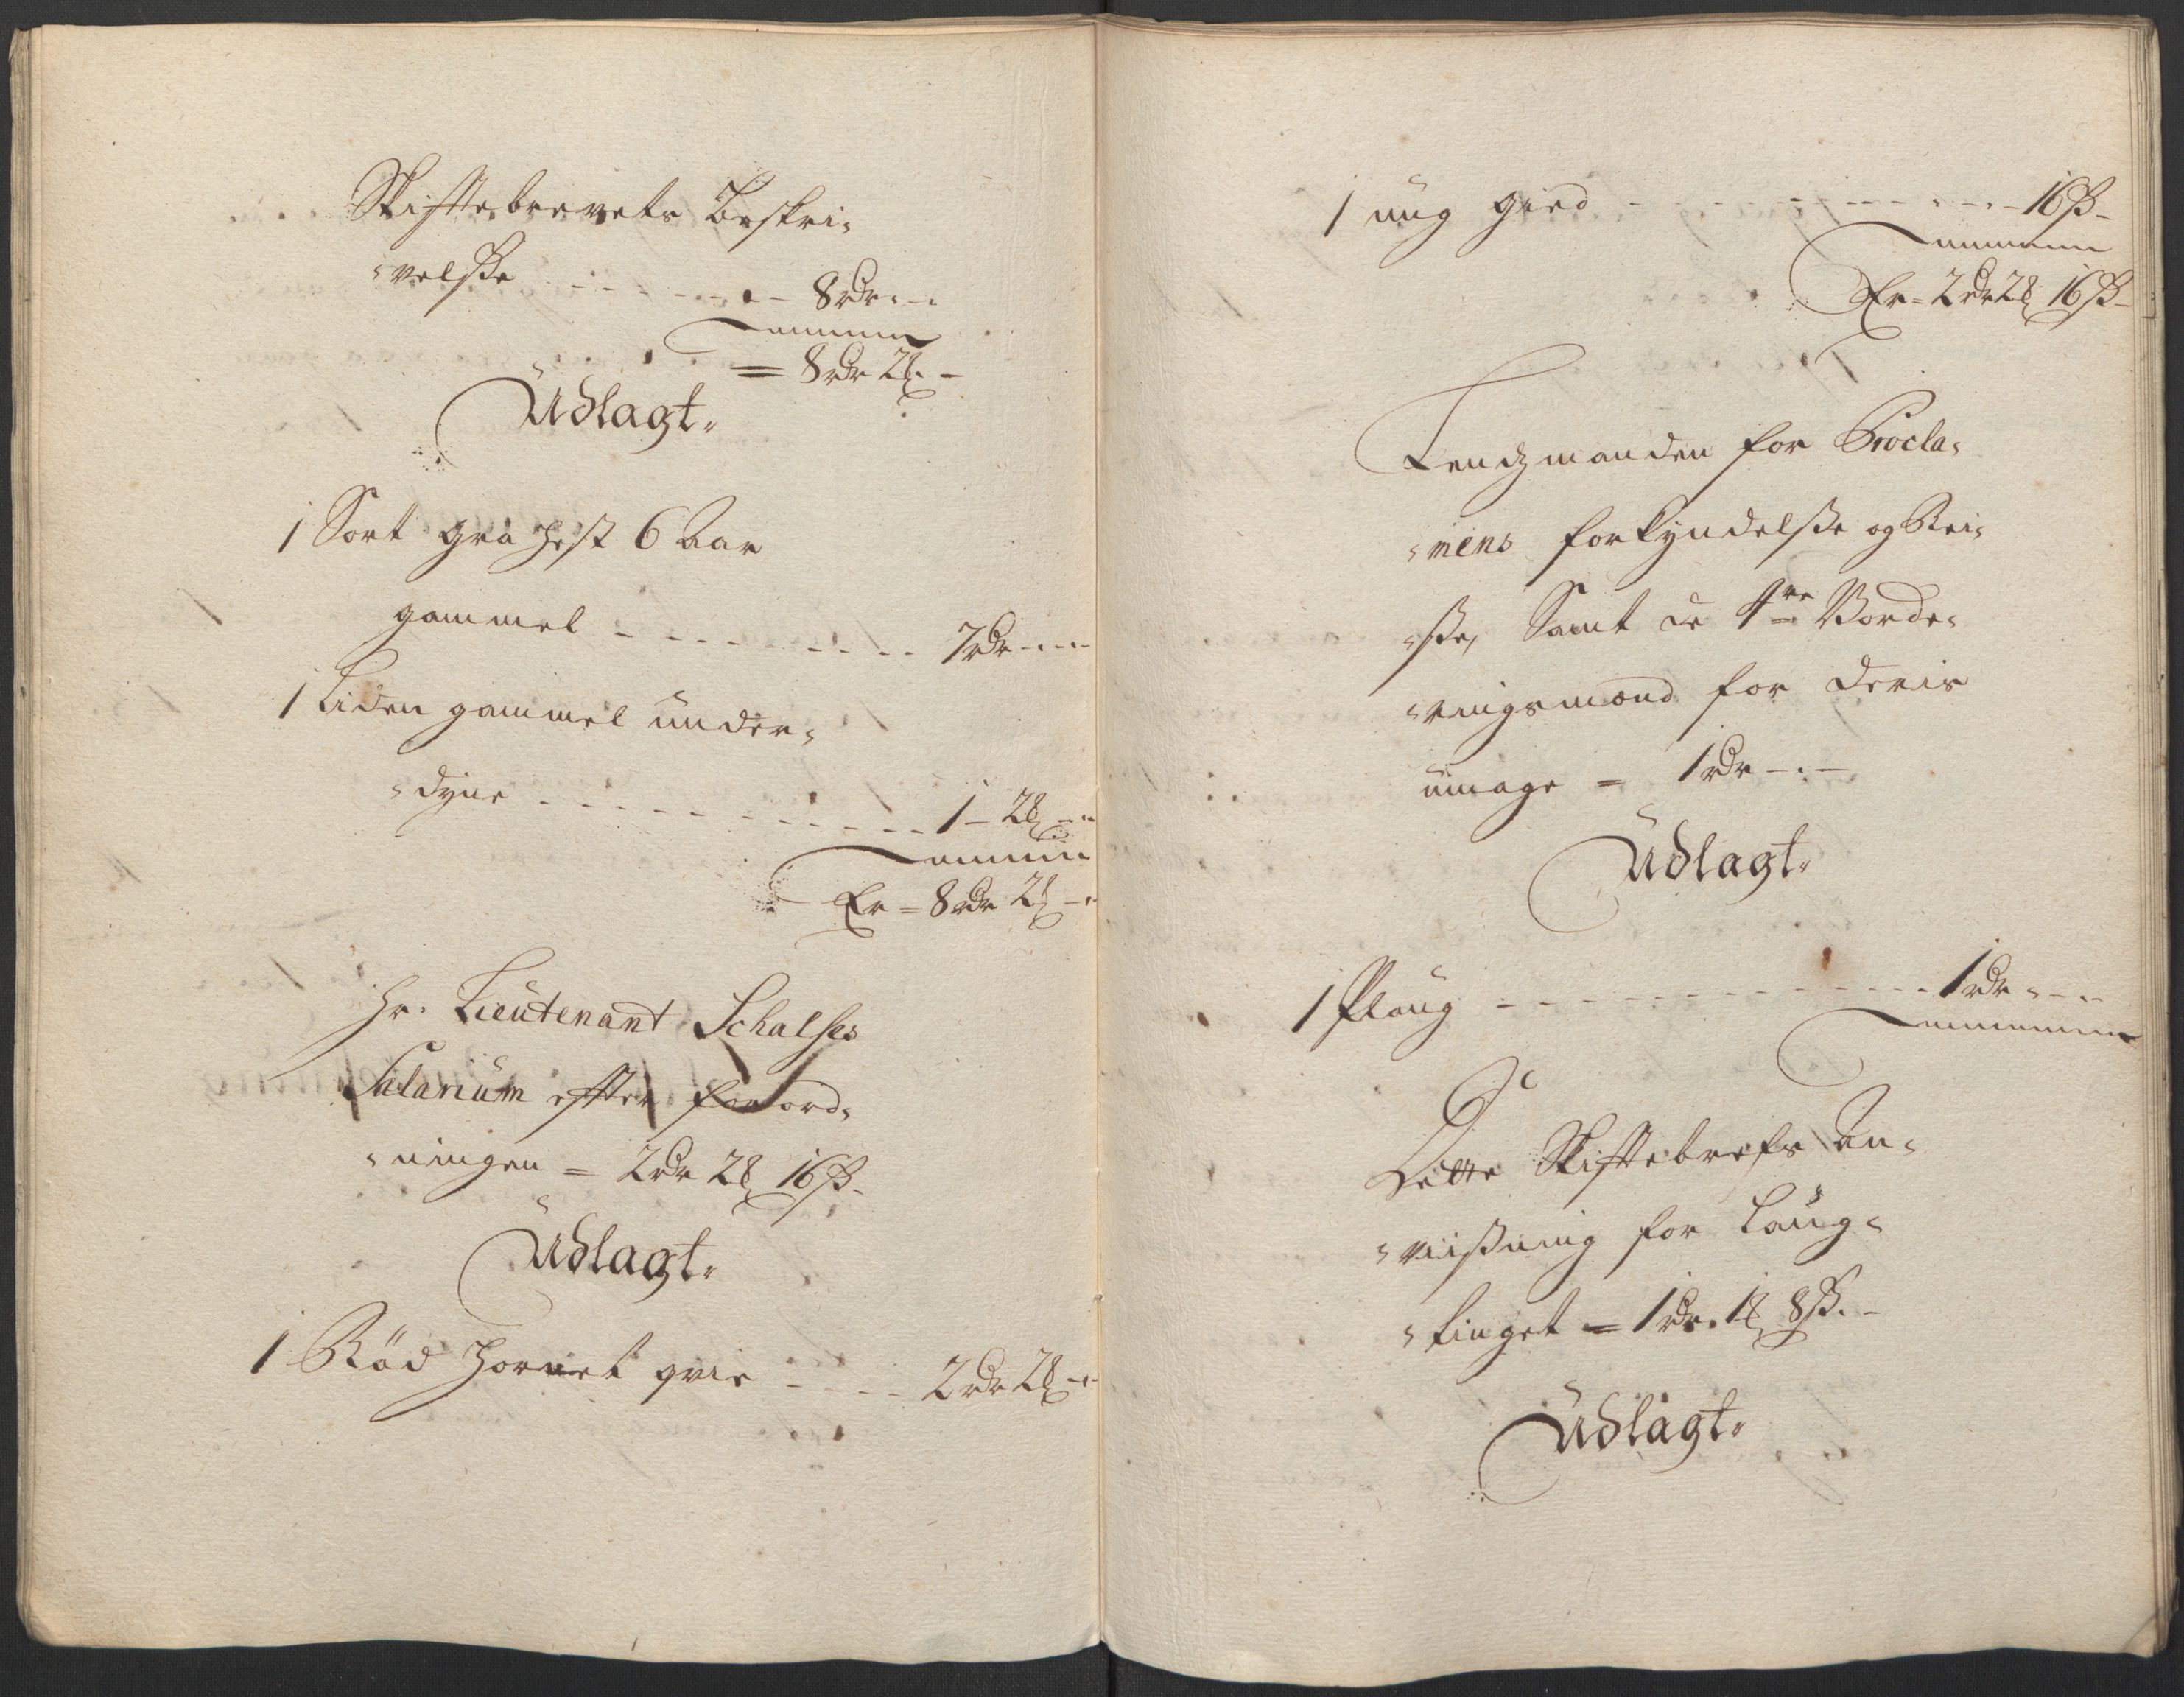 Skifftebrevets Beskri-
-velsse - - - - - - - 8rdr - -
= 8rdr 2 ℔ -
Udlagt.
1 Sort graa hest 6 Aar
gammel - - - - - - - - - 7rdr - - -
1 Liden gammel under-
-dyne - - - - - - - - - - - 1 - 2 ℔ - -
Er = 8rdr 2 ℔ - -
Hr. Lieutenant Schalses
Salarium effter forord-
-ningen = 2rdr 2 ℔ 16 ß -
Udlagt.
1 Rød hornet qvie - - - - 2rdr 2 ℔ - -
1 ung gied - - - - - - - - - - - 16 ß -
Er = 2rdr 2 ℔ 16 ß -
Lendzmanden for Procla-
-mens forkyndelsse og Rei-
-sse, Samt de 4re Vorde-
-ringsmænd for deris
umage = 1rdr - . -
Udlagt.
1 Ploug - - - - - - - - - - - - - 1rdr - - -
Dette Skifftebrefs An-
-viisning for Laug-
-tinget = 1rdr. 1 ℔ 8 ß. -
Udlagt.